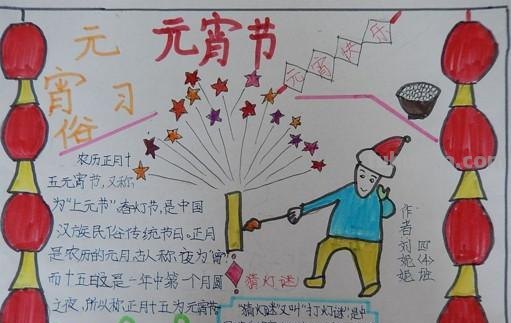 元宵节
元宵习俗
元宵快乐
农历正月十
五元宵节,又称
为"上元节"春灯节,是中国
汉族民俗传统节日。正月
是农历的元月,古人称夜为"宵"
而十五日又是一年中第一个月圆
之夜,所以称正月十五为元宵节
猜灯谜
"猜灯谜"又叫"打灯谜"是中
作者刘妮妮
四(4)班